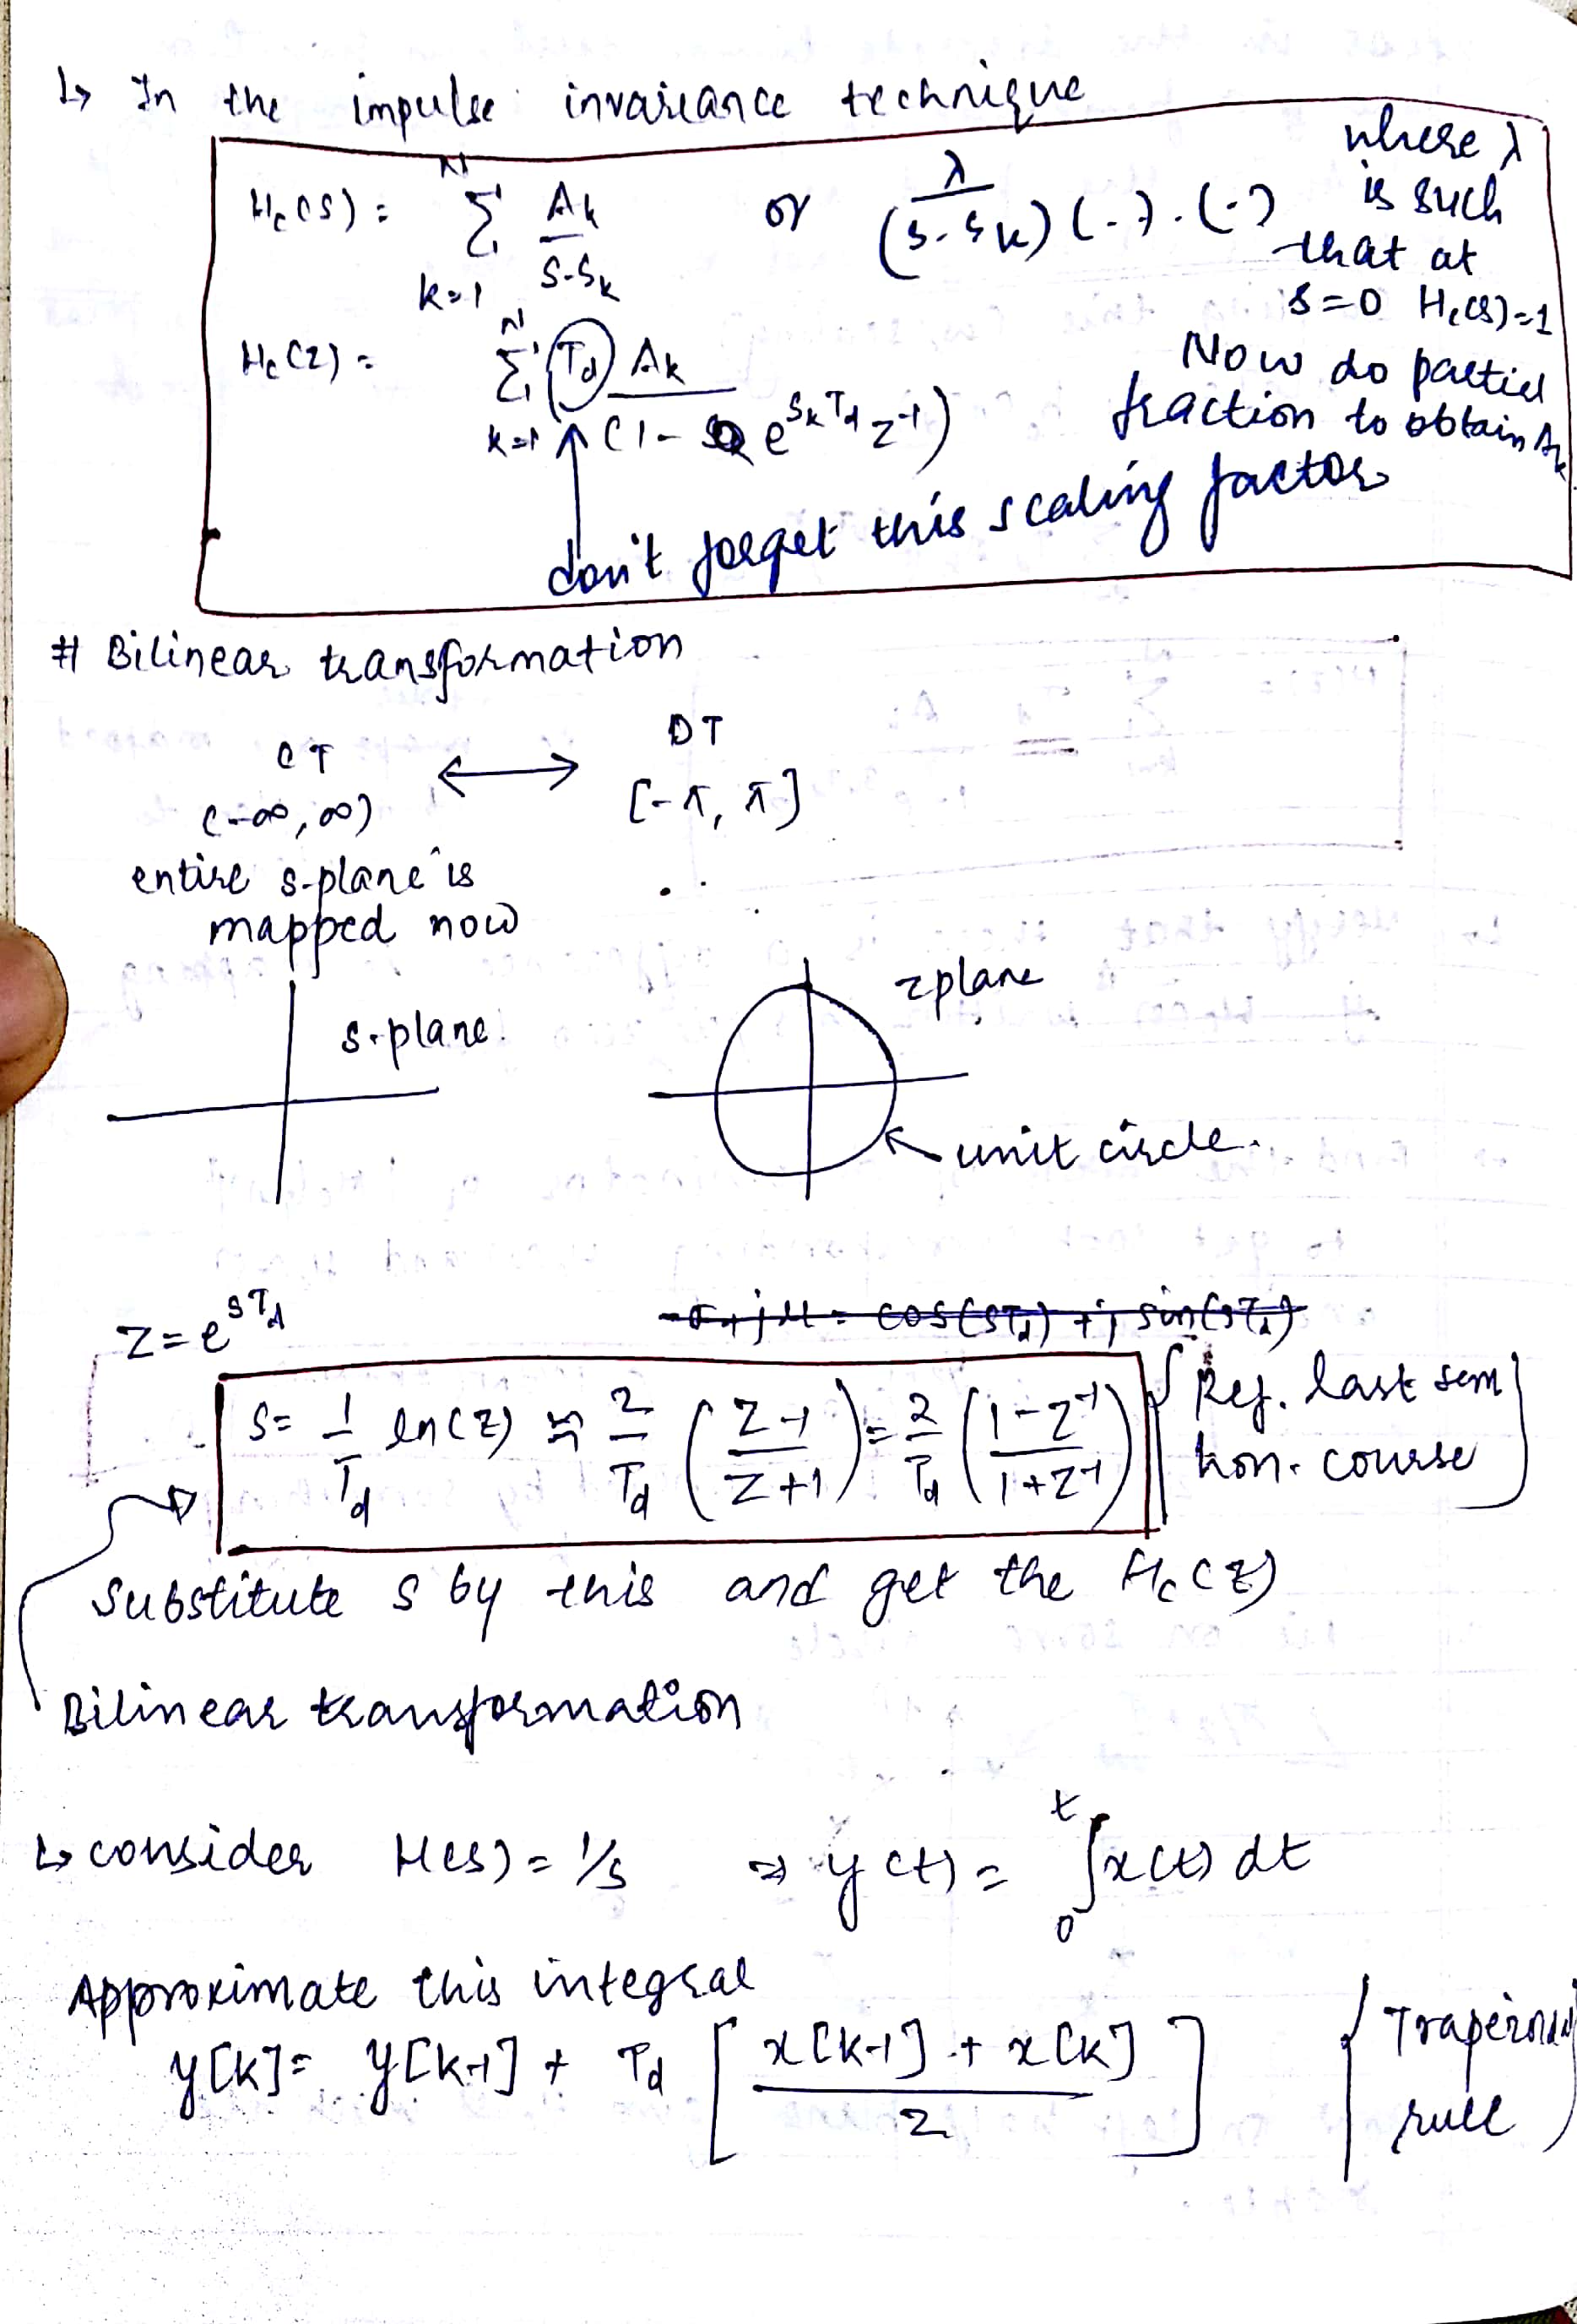 ↳ In the impulse invariance technique
Hc(s) = N Σ k=1 Ak / s-sk or λ / (s-sk)(-).(-) where λ
is such
that at
s=0 Hc(s)=1
Hc(z) = N Σ k=1 Td Ak / (1- e^(skTd) z^-1) Now do partial
fraction to obtain Ak
don't forget this scaling factor
# Bilinear transformation
CT ⟷ DT
(-∞, ∞) [-π, π]
entire s-plane is
mapped now
s-plane zplane
unit circle.
z = e^(sTd)
s = 1/Td ln(z) ≈ 2/Td ( z-1 / z+1 ) = 2/Td ( 1-z^-1 / 1+z^-1 ) { Ref. last sem
hon. course }
Substitute s by this and get the Hc(z)
Bilinear transformation
↳ consider H(s) = 1/s ⇒ y(t) = ∫₀ᵗ x(t) dt
Approximate this integral
y[k] = y[k-1] + Td [ x[k-1] + x[k] / 2 ] { Trapezoidal
rule }